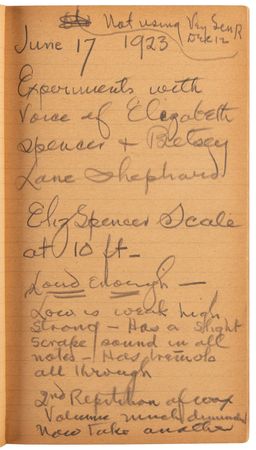 Not using Ven Sen R
Dec 12
June 17 1923
Experiments with
Voice of Elizabeth
Spencer & Betsey
Lane Shephard
Eliz Spencer Scale
at 10 ft -
Loud Enough -
Low is weak high
strong - Has a slight
scrape sound in all
notes - Has tremolo
all through
2nd Repetition of wax
Volume much diminished
Now take another